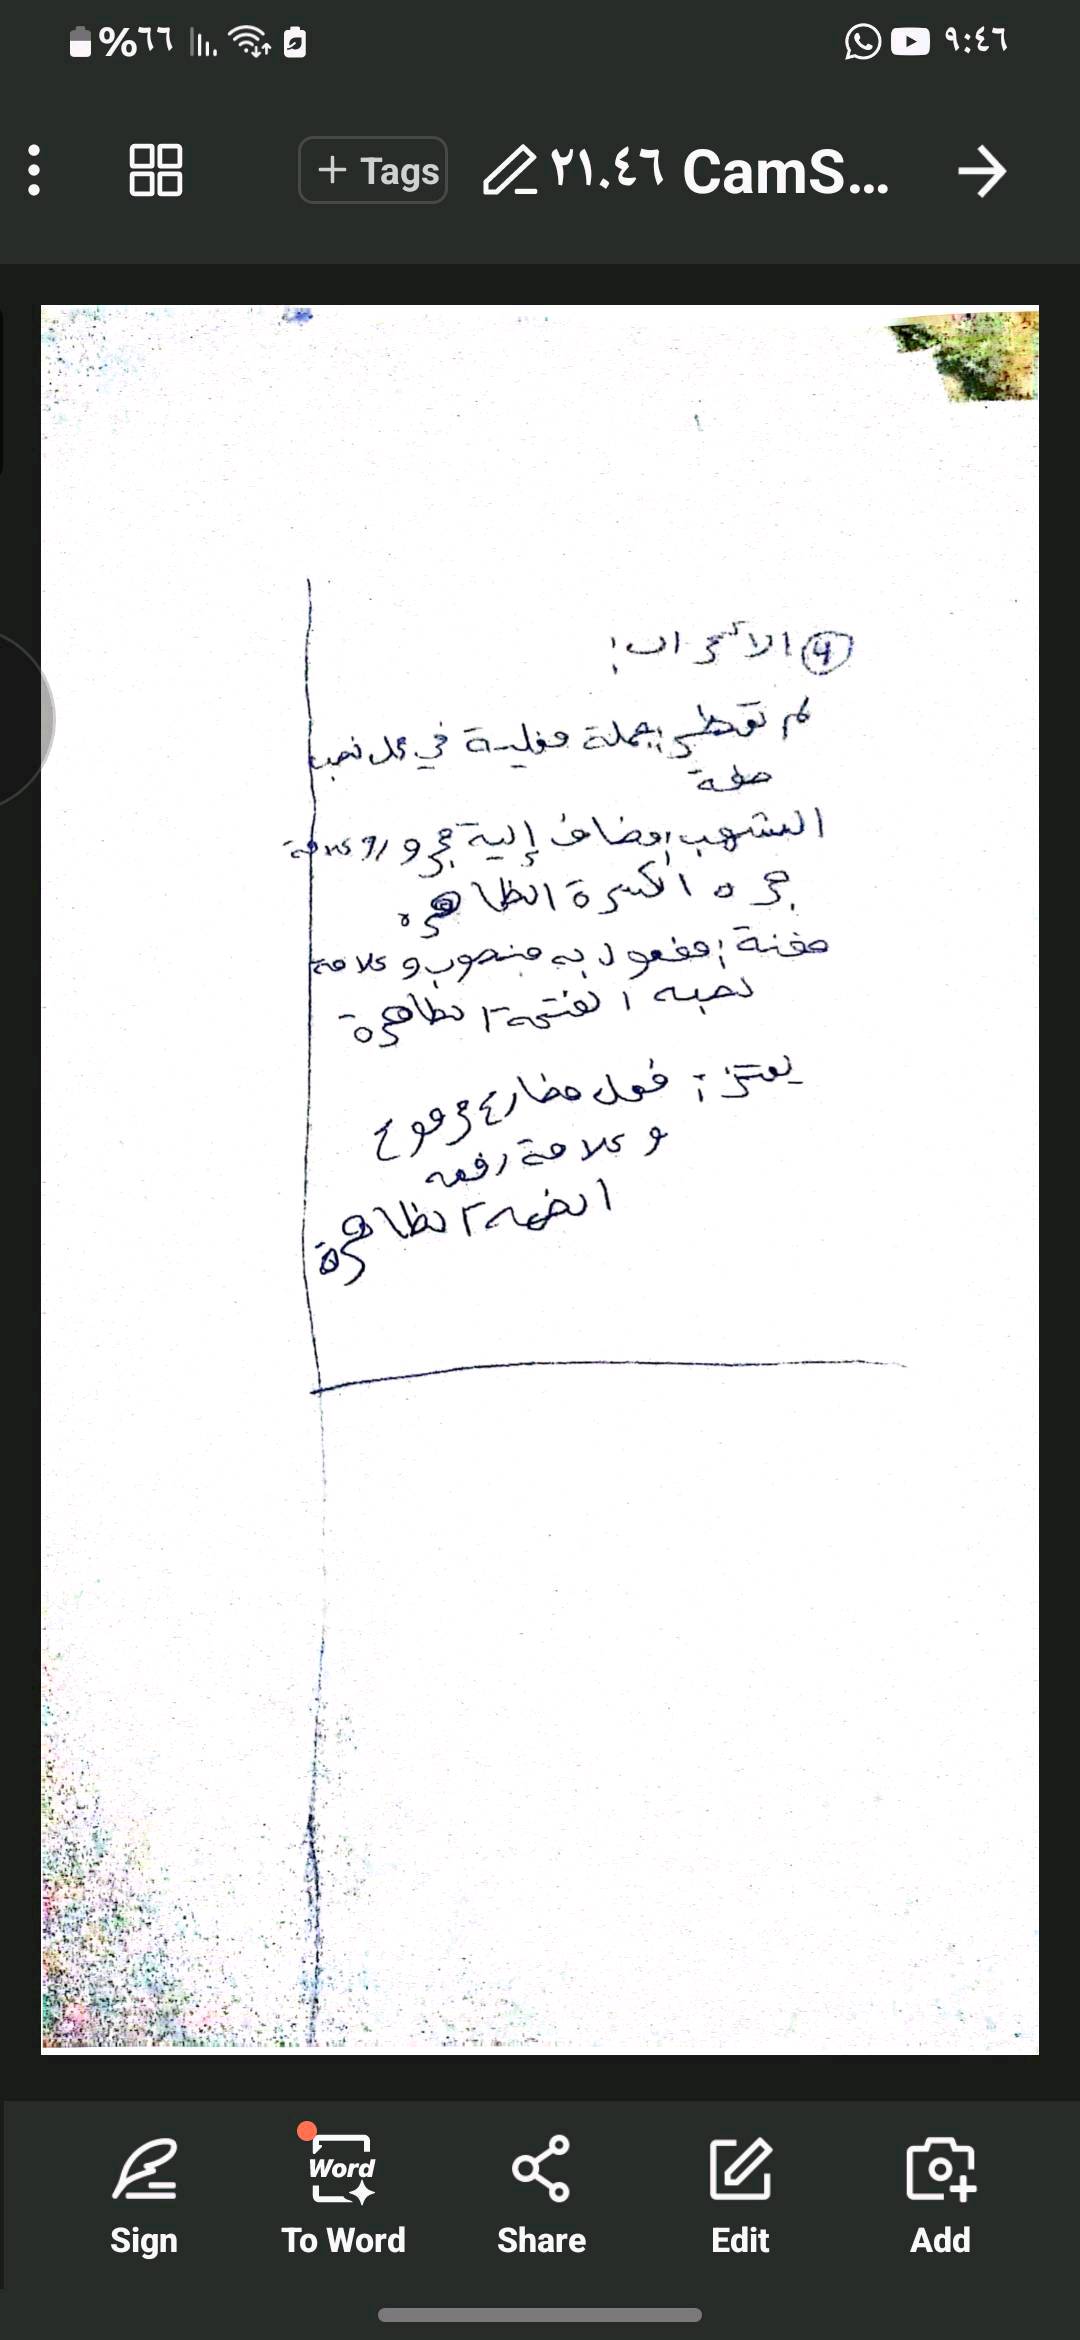 ٩:٤٦
%٦٦
٢١.٤٦ CamS...
+ Tags
٤ الاعراب:
لم تقطر: جملة فعلية في محل نصب
صفة
الشهب: مضاف إلية مجرور وعلامة
جره الكسرة الظاهره
حفنة: مفعول به منصوب وعلامة
نصبه الفتحة الظاهرة
يعتز: فعل مضارع مرفوع
وعلامة رفعه
الضمه الظاهرة
Sign
Word
To Word
Share
Edit
Add